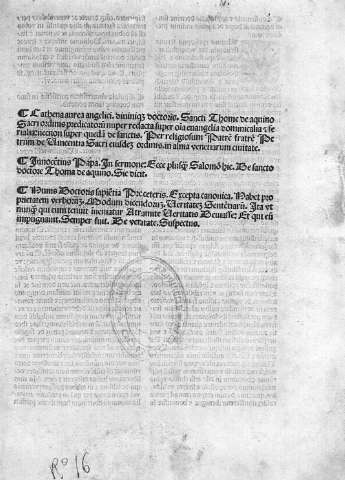 ¶ Cathena aurea angelici. diuiniqʒ doctoris. Sancti Thome de aquino
Sacri ordinis predicatoꝝ nuper redacta super oīa euangelia dominicalia ⁊ fe
rialia necnon super quedā de sanctis. Per religiosum Patrē fratrē Pe
trum de Uincentia Sacri eiusdeʒ ordinis. in alma venetiarum ciuitate.
¶ Innocētius Papa. In sermone: Ecce plusqʒ Salomō hic. De sancto
doctore Thoma de aquino. Sic dicit.
¶ Huius Doctoris sapiētia Pre ceteris. Excepta canonica. Habet pro
prietatem verboruʒ. Modum dicendoruʒ. Ueritatē Sentētiarū. Ita vt
nunqʒ qui eum tenuit inueniatur A tramite Ueritatis Deuiasse: Et qui eū
impugnauit. Semper fuit. De veritate. Suspectus.
Rº 16